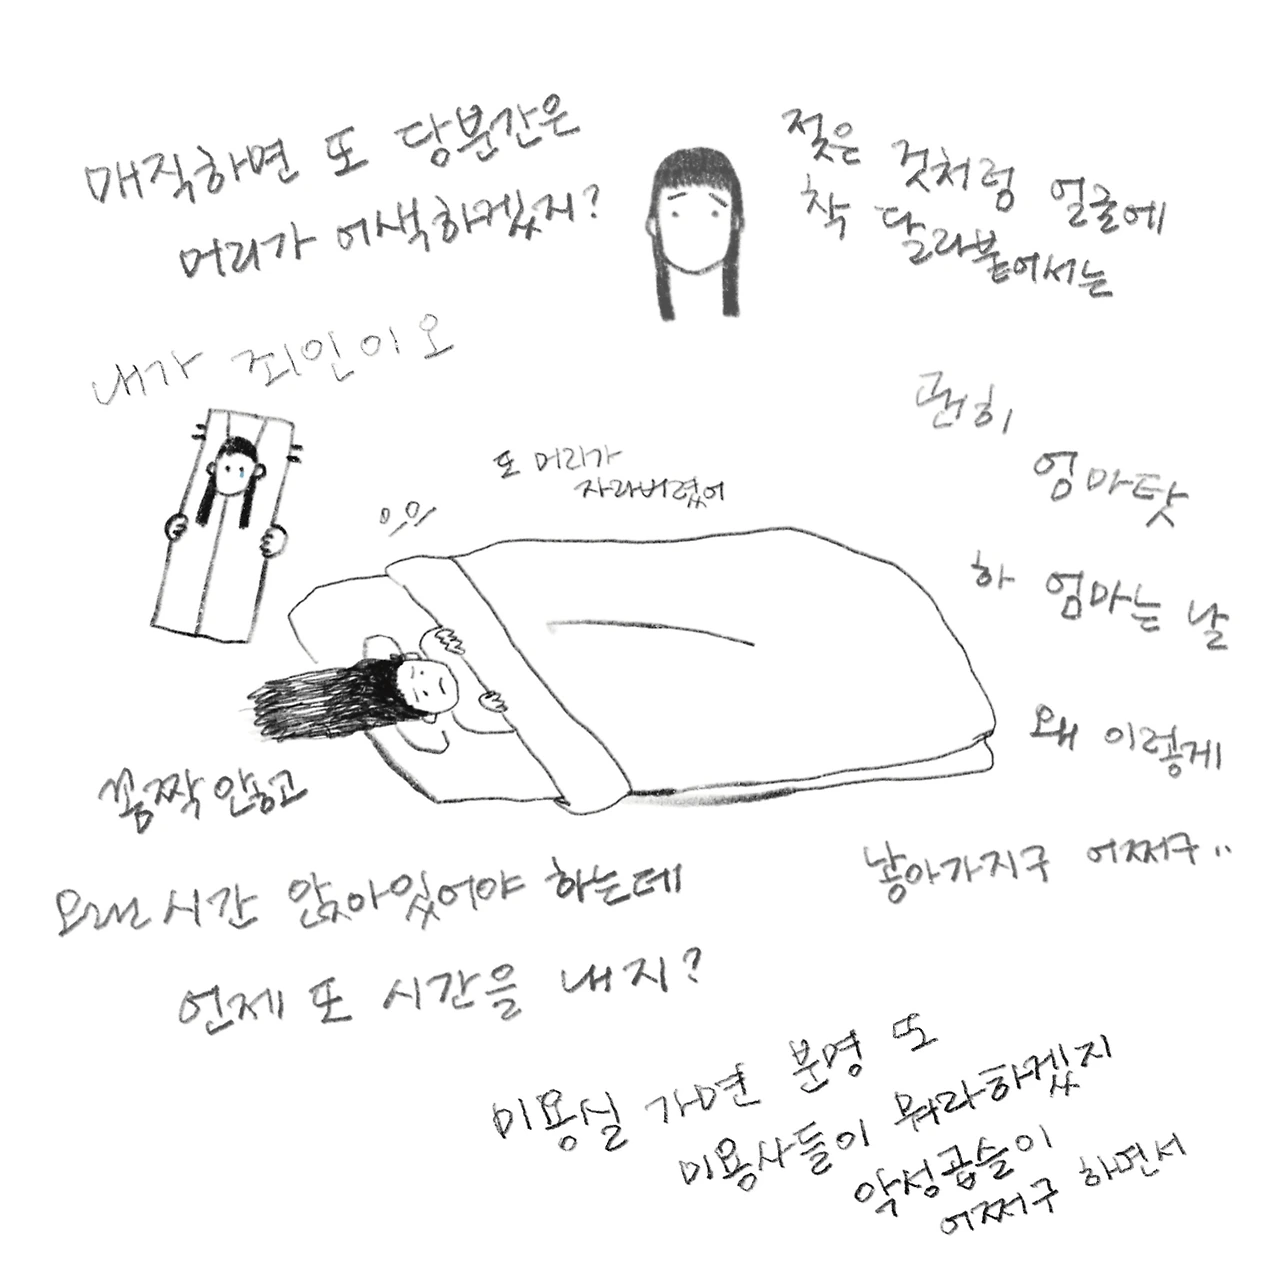 매직하면 또 당분간은
머리가 어색하겠지?
젖은 것처럼 얼굴에
착 달라붙어서는
내가 죄인이오
또 머리가
자라버렸어
괜히
엄마탓
하 엄마는 날
왜 이렇게
낳아가지구 어쩌구..
꼼짝 안하고
오랜 시간 앉아있어야 하는데
언제 또 시간을 내지?
미용실 가면 분명 또
미용사들이 뭐라하겠지
악성곱슬이
어쩌구 하면서